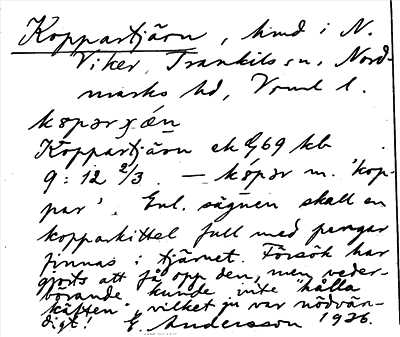 Koppartjärn, hmd i N.
Viker, Trankils sn, Nord-
marks hd, Vrml l.
Koppartjärn ek 69 kb
9:12 2/3. — m. 'kop-
par'. Enl. sägnen skall en
kopparkittel full med pengar
finnas i tjärnet. Försök har
gjorts att få opp den, men veder-
börande kunde inte "hålla
käften", vilket ju var nödvän-
digt! E. Andersson 1926.